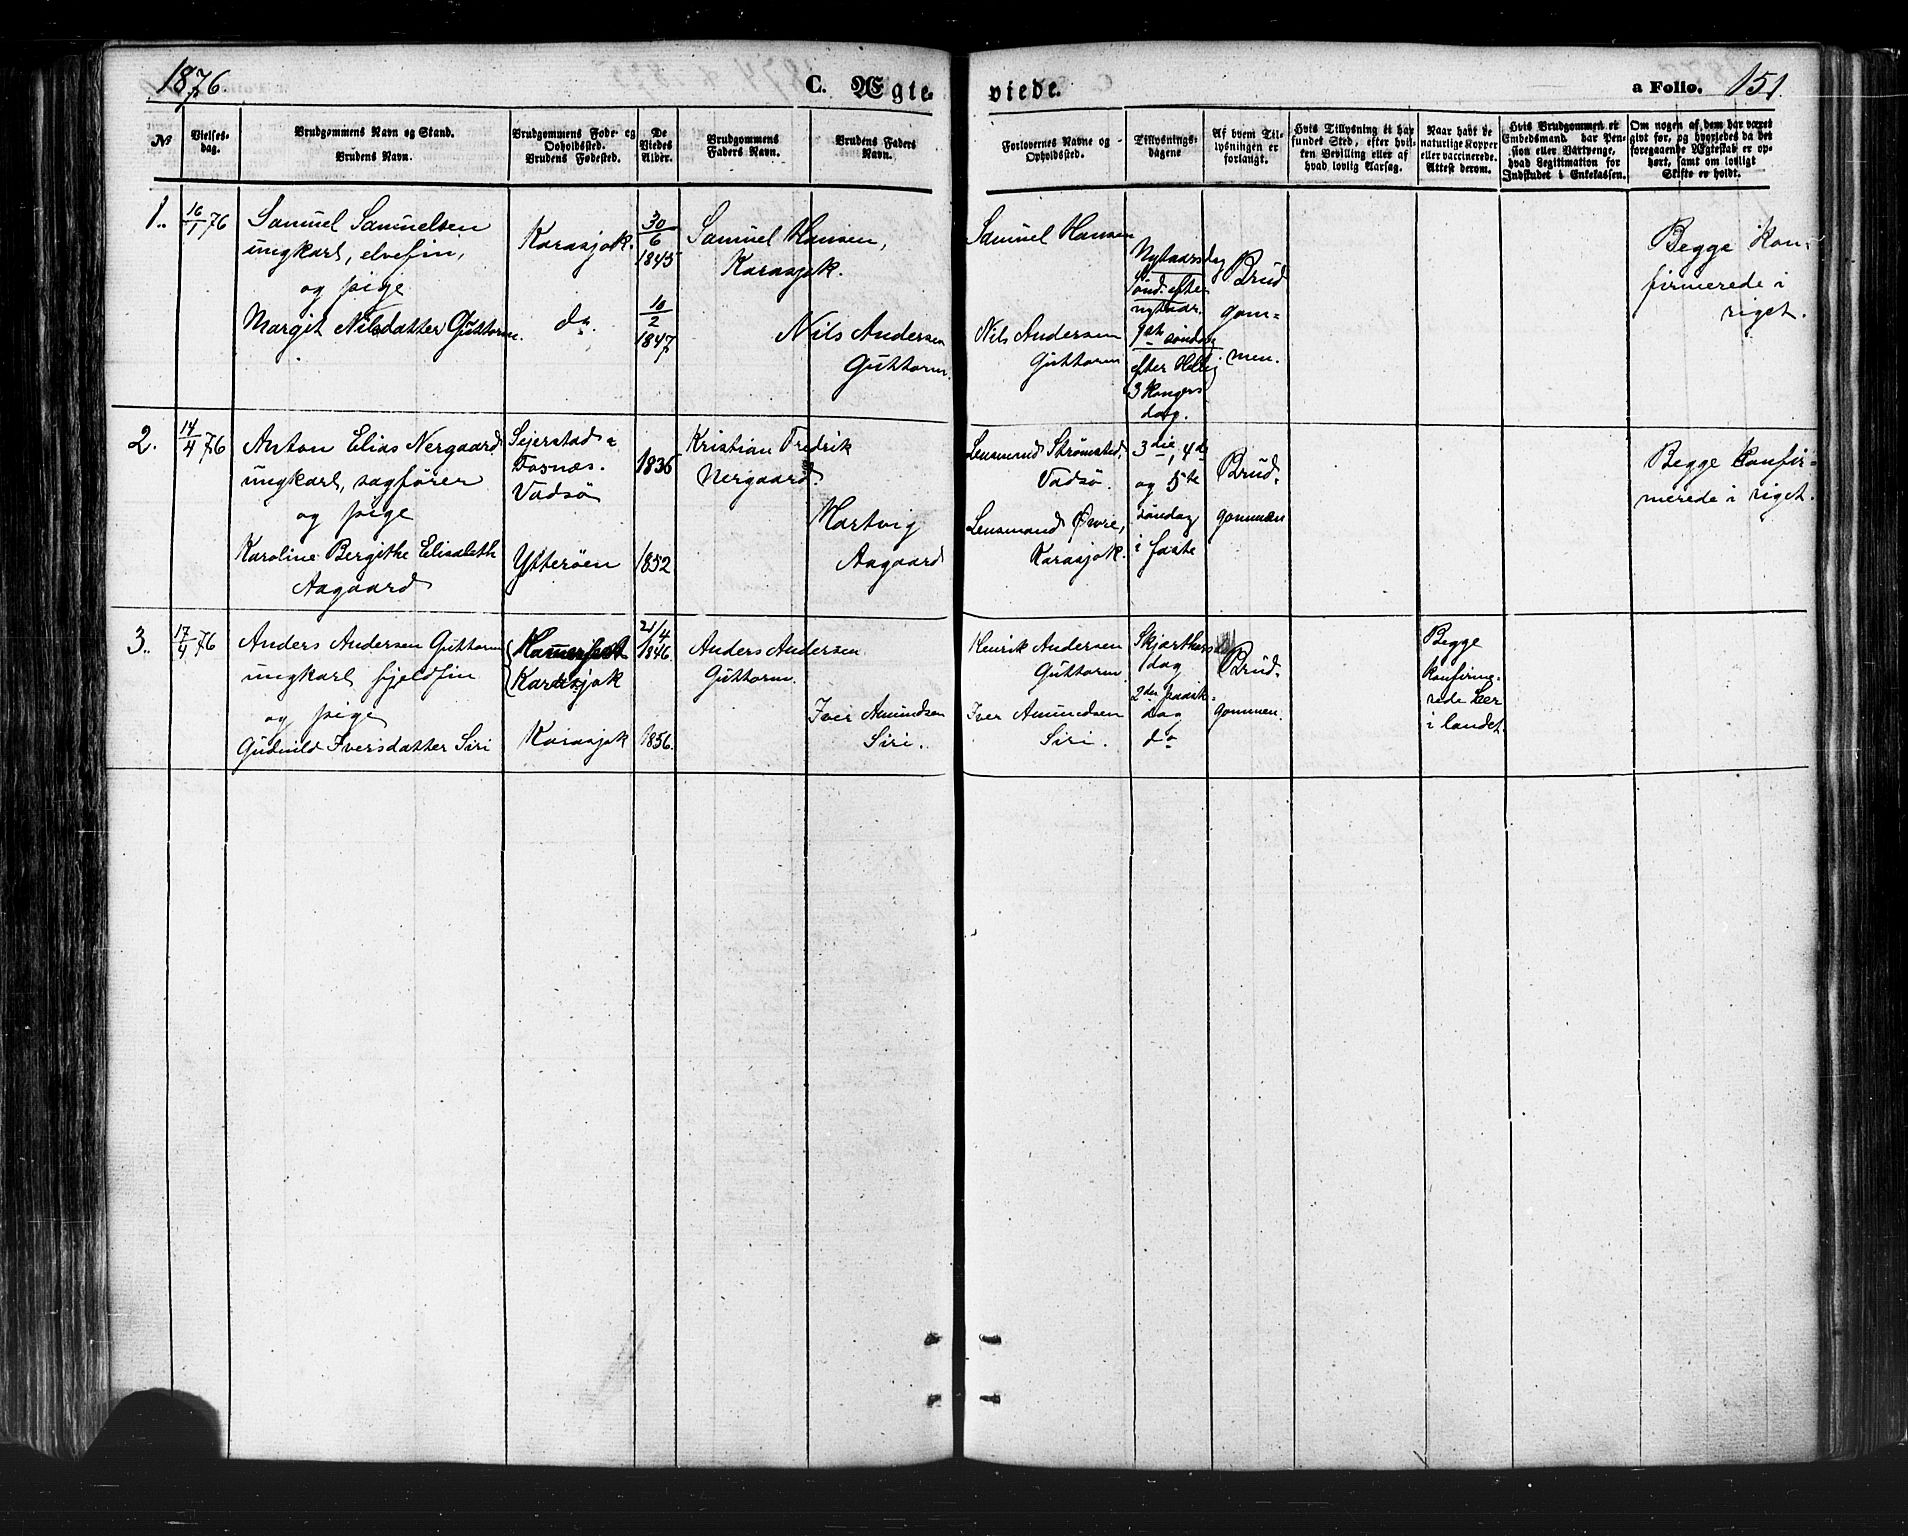 1876
C. Ægte-
viede.
a Folio. 151.
No
Vielses-
dag.
Brudgommens Navn og Stand.
Brudens Navn.
Brudgommens Føde- og
Opholdssted.
Brudens Fødested.
De
Viedes
Alder.
Brudgommens
Faders Navn.
Brudens Faders
Navn.
Forlovernes Navne og
Opholdssted.
Tillysnings-
dagene
Af hvem Til-
lysningen er
forlangt.
Hvis Tillysning ei har
fundet Sted, efter hvil-
ken Bevilling eller af
hvad lovlig Aarsag.
Naar havt de
naturlige Kopper
eller vaccinerede.
Attest derom.
Hvis Brudgommen er
Embedsmand, har Pen-
sion eller Vartpenge,
hvad Legitimation for
Indskudet i Enkekassen.
Om nogen af dem har været
gift før, og hvorledes da det
foregaaende Ægteskab er op-
hørt, samt om lovligt
Skifte er holdt.
1..
16/1 76
Samuel Samuelsen
ungkarl, elvefin,
og pige
Margit Nilsdatter Guttorm.
Karasjok.
do.
30/6
1845
10/2
1847
Samuel Hansen,
Karasjok.
Nils Andersen
Guttorm.
Samuel Hansen
Nils Andersen
Guttorm
Nytaarsdag
Sönd. efter
nytaar.
1ste söndag
efter Hellig
3 Kongers
dag.
Brud
gom=
men.
Begge kon-
firmerede i
riget.
2.
14/4 76
Anton Elias Nergaard
ungkarl, sagförer
og pige
Karoline Bergithe Elisabeth
Aagaard
Sejerstad
Fosnæs.
Vadsö
Ytteröen
1836
1852
Kristian Fredrik
Nergaard.
Hartvig
Aagaard
Lensmand Strömsted,
Vadsö.
Lensmand Øvre,
Karasjok.
3die, 4de
og 5te
söndag
i faste
Brud.
gommen
Begge konfir=
merede i riget.
3..
17/4 76
Anders Andersen Guttorm
ungkarl fjeldfin
og pige
Gudnild Iversdatter Siri
Karasjok
Karasjok
21/4
1846.
1856.
Anders Andersen
Guttorm.
Iver Amundsen
Siri.
Henrik Andersen
Guttorm.
Iver Amundsen
Siri.
Skjærthors
dag
2den paask-
dag
do
Brud.
gommen.
Begge
konfirme-
rede her
i landet.